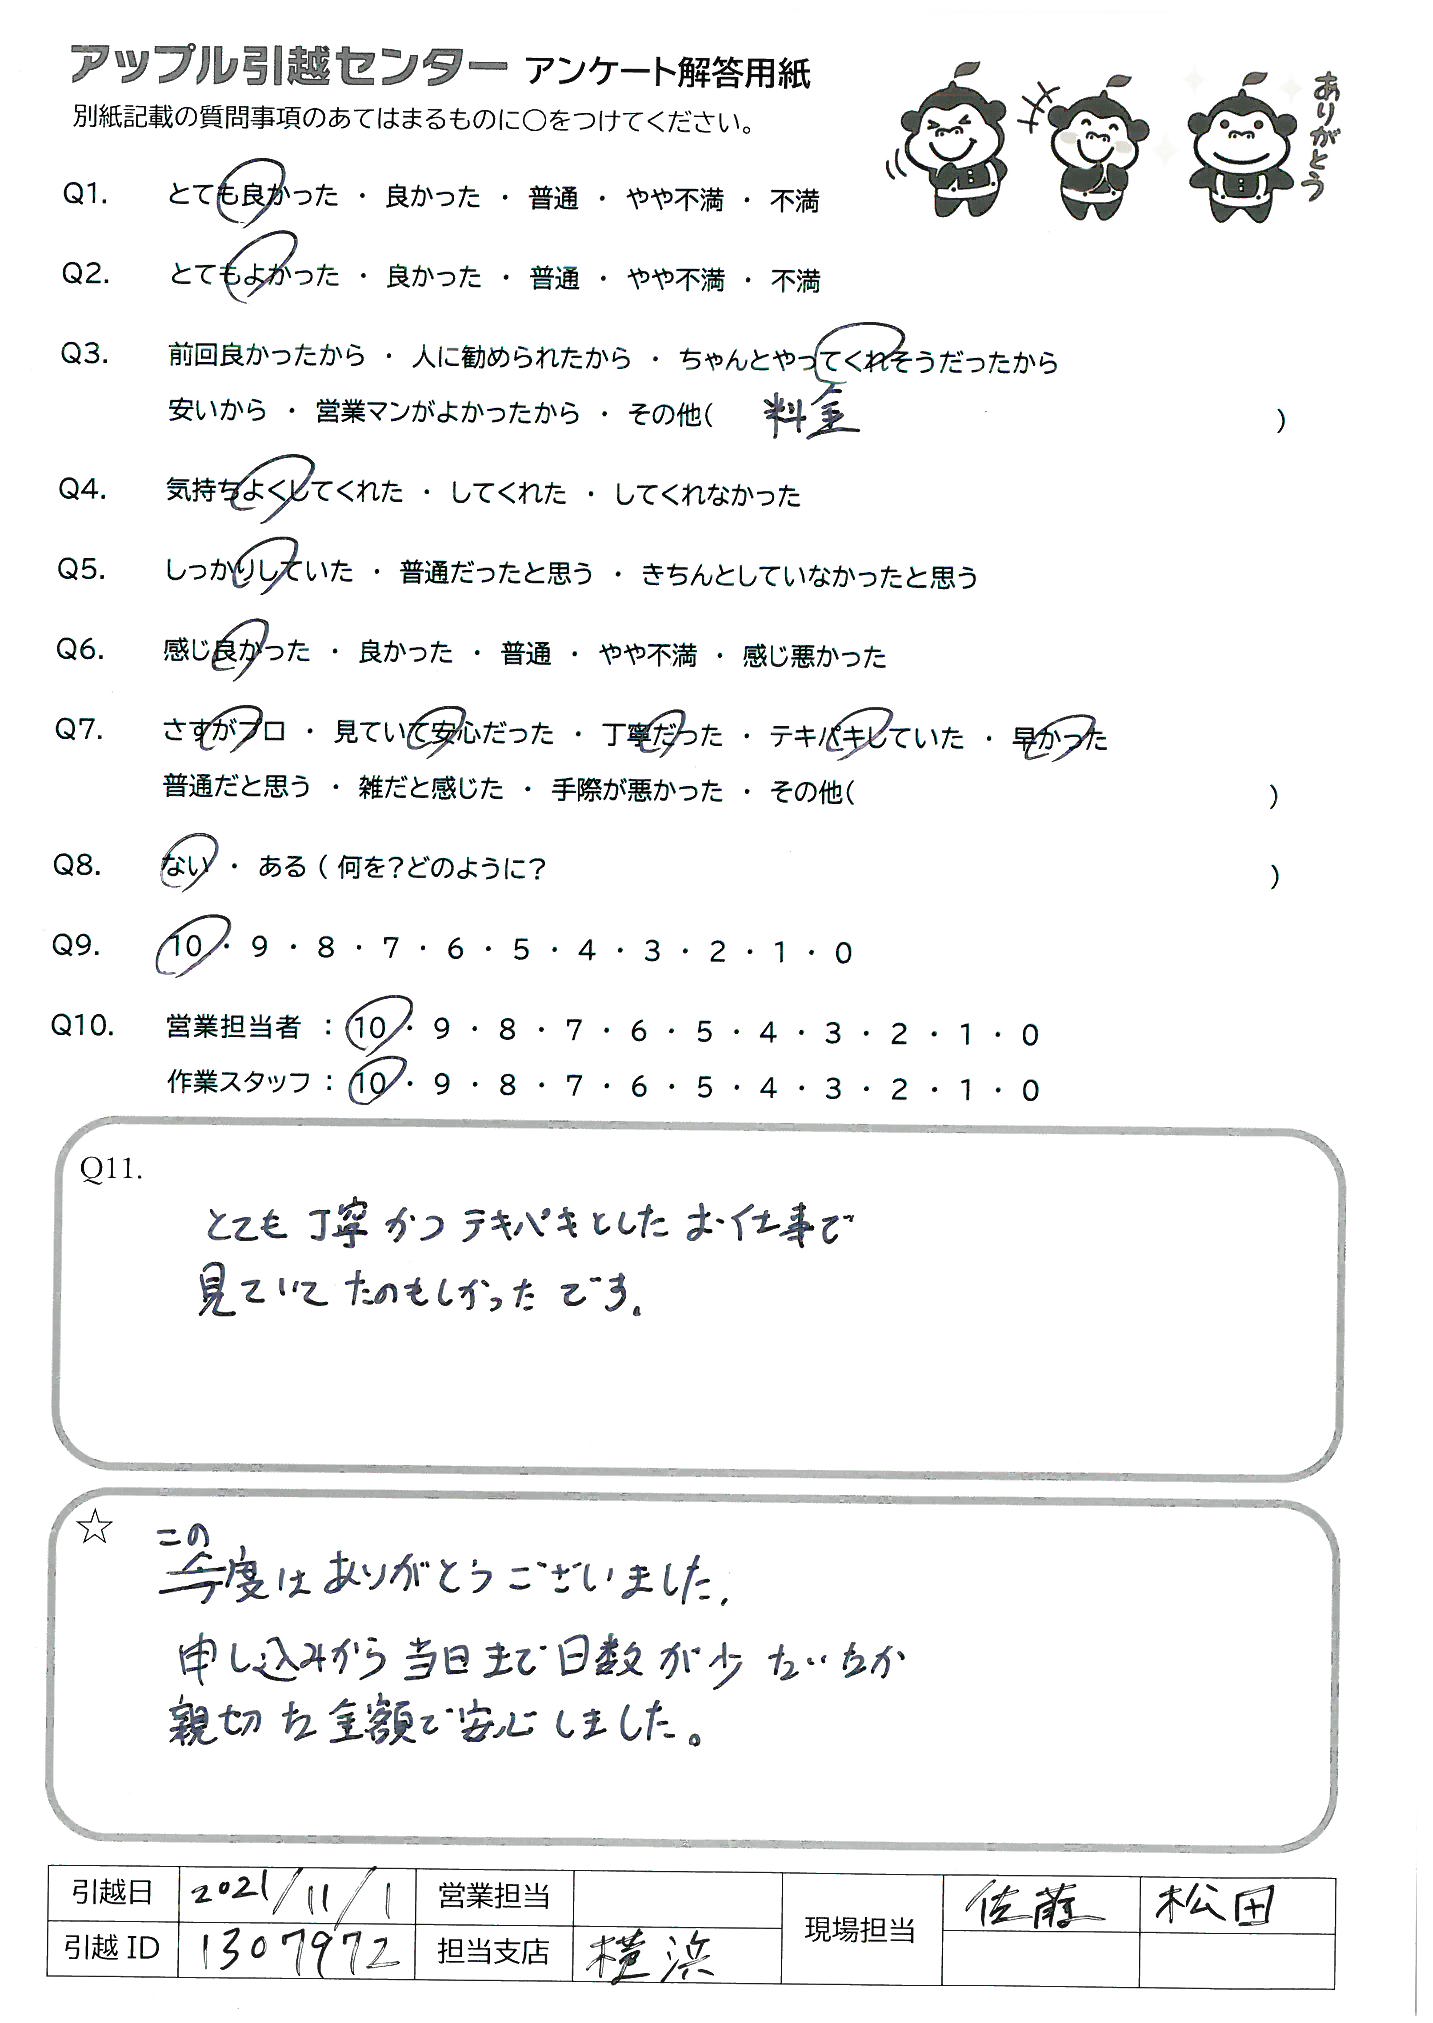 アップル引越センター アンケート解答用紙
ありがとう
別紙記載の質問事項のあてはまるものに○をつけてください。
Q1. とても良かった ・ 良かった ・ 普通 ・ やや不満 ・ 不満
Q2. とてもよかった ・ 良かった ・ 普通 ・ やや不満 ・ 不満
Q3. 前回良かったから ・ 人に勧められたから ・ ちゃんとやってくれそうだったから
安いから ・ 営業マンがよかったから ・ その他( 料金 )
Q4. 気持ちよくしてくれた ・ してくれた ・ してくれなかった
Q5. しっかりしていた ・ 普通だったと思う ・ きちんとしていなかったと思う
Q6. 感じ良かった ・ 良かった ・ 普通 ・ やや不満 ・ 感じ悪かった
Q7. さすがプロ ・ 見ていて安心だった ・ 丁寧だった ・ テキパキしていた ・ 早かった
普通だと思う ・ 雑だと感じた ・ 手際が悪かった ・ その他( )
Q8. ない ・ ある ( 何を?どのように? )
Q9. 10 ・ 9 ・ 8 ・ 7 ・ 6 ・ 5 ・ 4 ・ 3 ・ 2 ・ 1 ・ 0
Q10. 営業担当者 : 10 ・ 9 ・ 8 ・ 7 ・ 6 ・ 5 ・ 4 ・ 3 ・ 2 ・ 1 ・ 0
作業スタッフ : 10 ・ 9 ・ 8 ・ 7 ・ 6 ・ 5 ・ 4 ・ 3 ・ 2 ・ 1 ・ 0
Q11.
とても丁寧かつテキパキとしたお仕事で
見ていてたのもしかったです。
☆ この
今度はありがとうございました。
申し込みから当日まで日数が少ないなか
親切な金額で安心しました。
引越日 2021/11/1 営業担当 現場担当 佐藤 松田
引越ID 1307972 担当支店 横浜